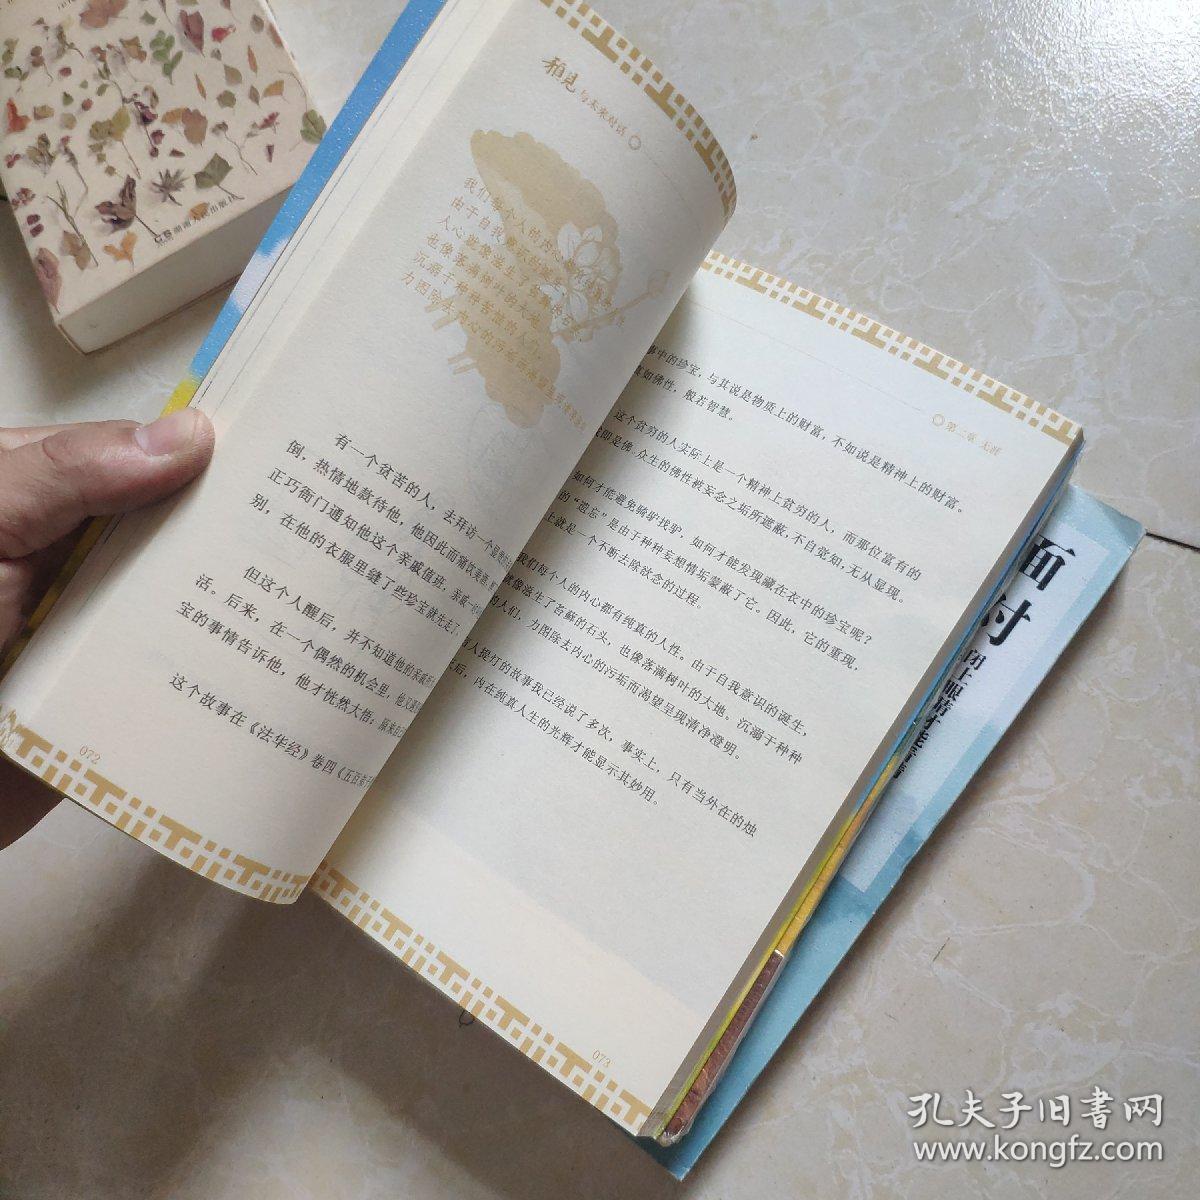 湖南人民出版社
相见 与未来对话
我们每个人的内心
由于自我意识的诞生
人心就像滋生了苔藓的石
也像落满树叶的大地
沉溺于种种苦恼的人们
力图除去内心的污垢而渴望
有一个贫苦的人，去拜访一个显贵的
倒，热情地款待他，他因此而痛饮美酒，
正巧衙门通知他这个亲戚值班，亲戚
别，在他的衣服里缝了些珍宝就先走了，
但这个人醒后，并不知道他的亲戚所
活。后来，在一个偶然的机会里，他又
宝的事情告诉他，他才恍然大悟：原来
这个故事在《法华经》卷四《五百弟子
072
第二章 无涯
事中的珍宝，与其说是物质上的财富，不如说是精神上的财富。
真如佛性，般若智慧。
这个贫穷的人实际上是一个精神上贫穷的人，而那位富有的
即是佛。众生的佛性被妄念之垢所遮蔽，不自觉知，无从显现。
如何才能避免骑驴找驴，如何才能发现藏在衣中的珍宝呢？
的“遗忘”是由于种种妄想情垢蒙蔽了它。因此，它的重现，
上就是一个不断去除欲念的过程。
我们每个人的内心都有纯真的人性。由于自我意识的诞生，
就像滋生了苔藓的石头，也像落满树叶的大地。沉溺于种种
的人们，力图除去内心的污垢而渴望呈现清净澄明。
盲人提灯的故事我已经说了多次，事实上，只有当外在的烛
后，内在纯真人生的光辉才能显示其妙用。
073
面
对
闭上眼睛才能看清
孔夫子旧書网
www.kongfz.com